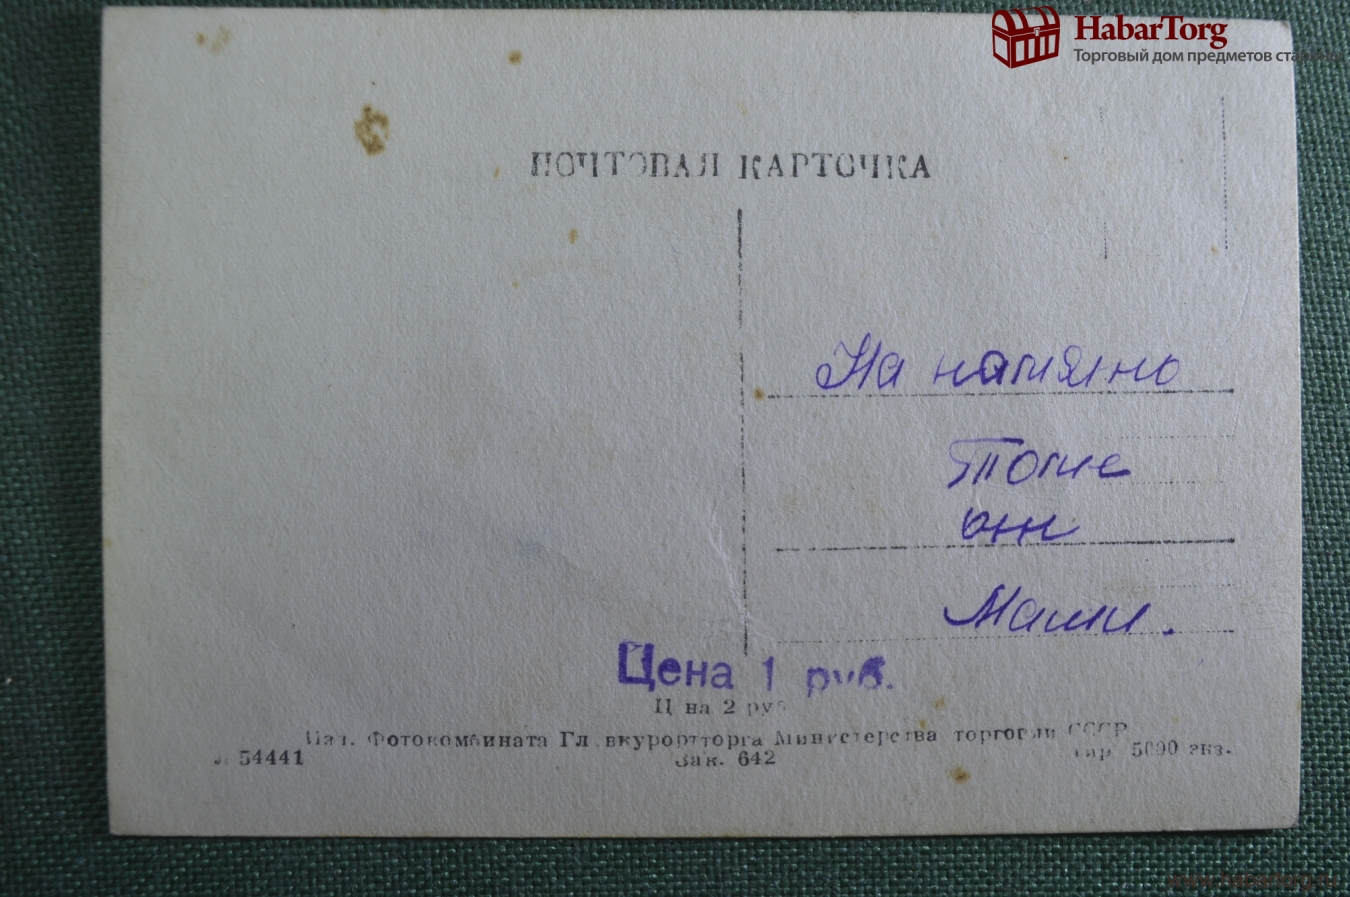 HabarTorg
Торговый дом предметов старины
ПОЧТОВАЯ КАРТОЧКА
На память
Томе
от
Маши.
Цена 1 руб.
Цена 2 руб
Изд. Фотокомбината Главкурортторга Министерства торговли СССР
Л 54441 Зак. 642 Тир. 5000 экз.
www.habartorg.ru